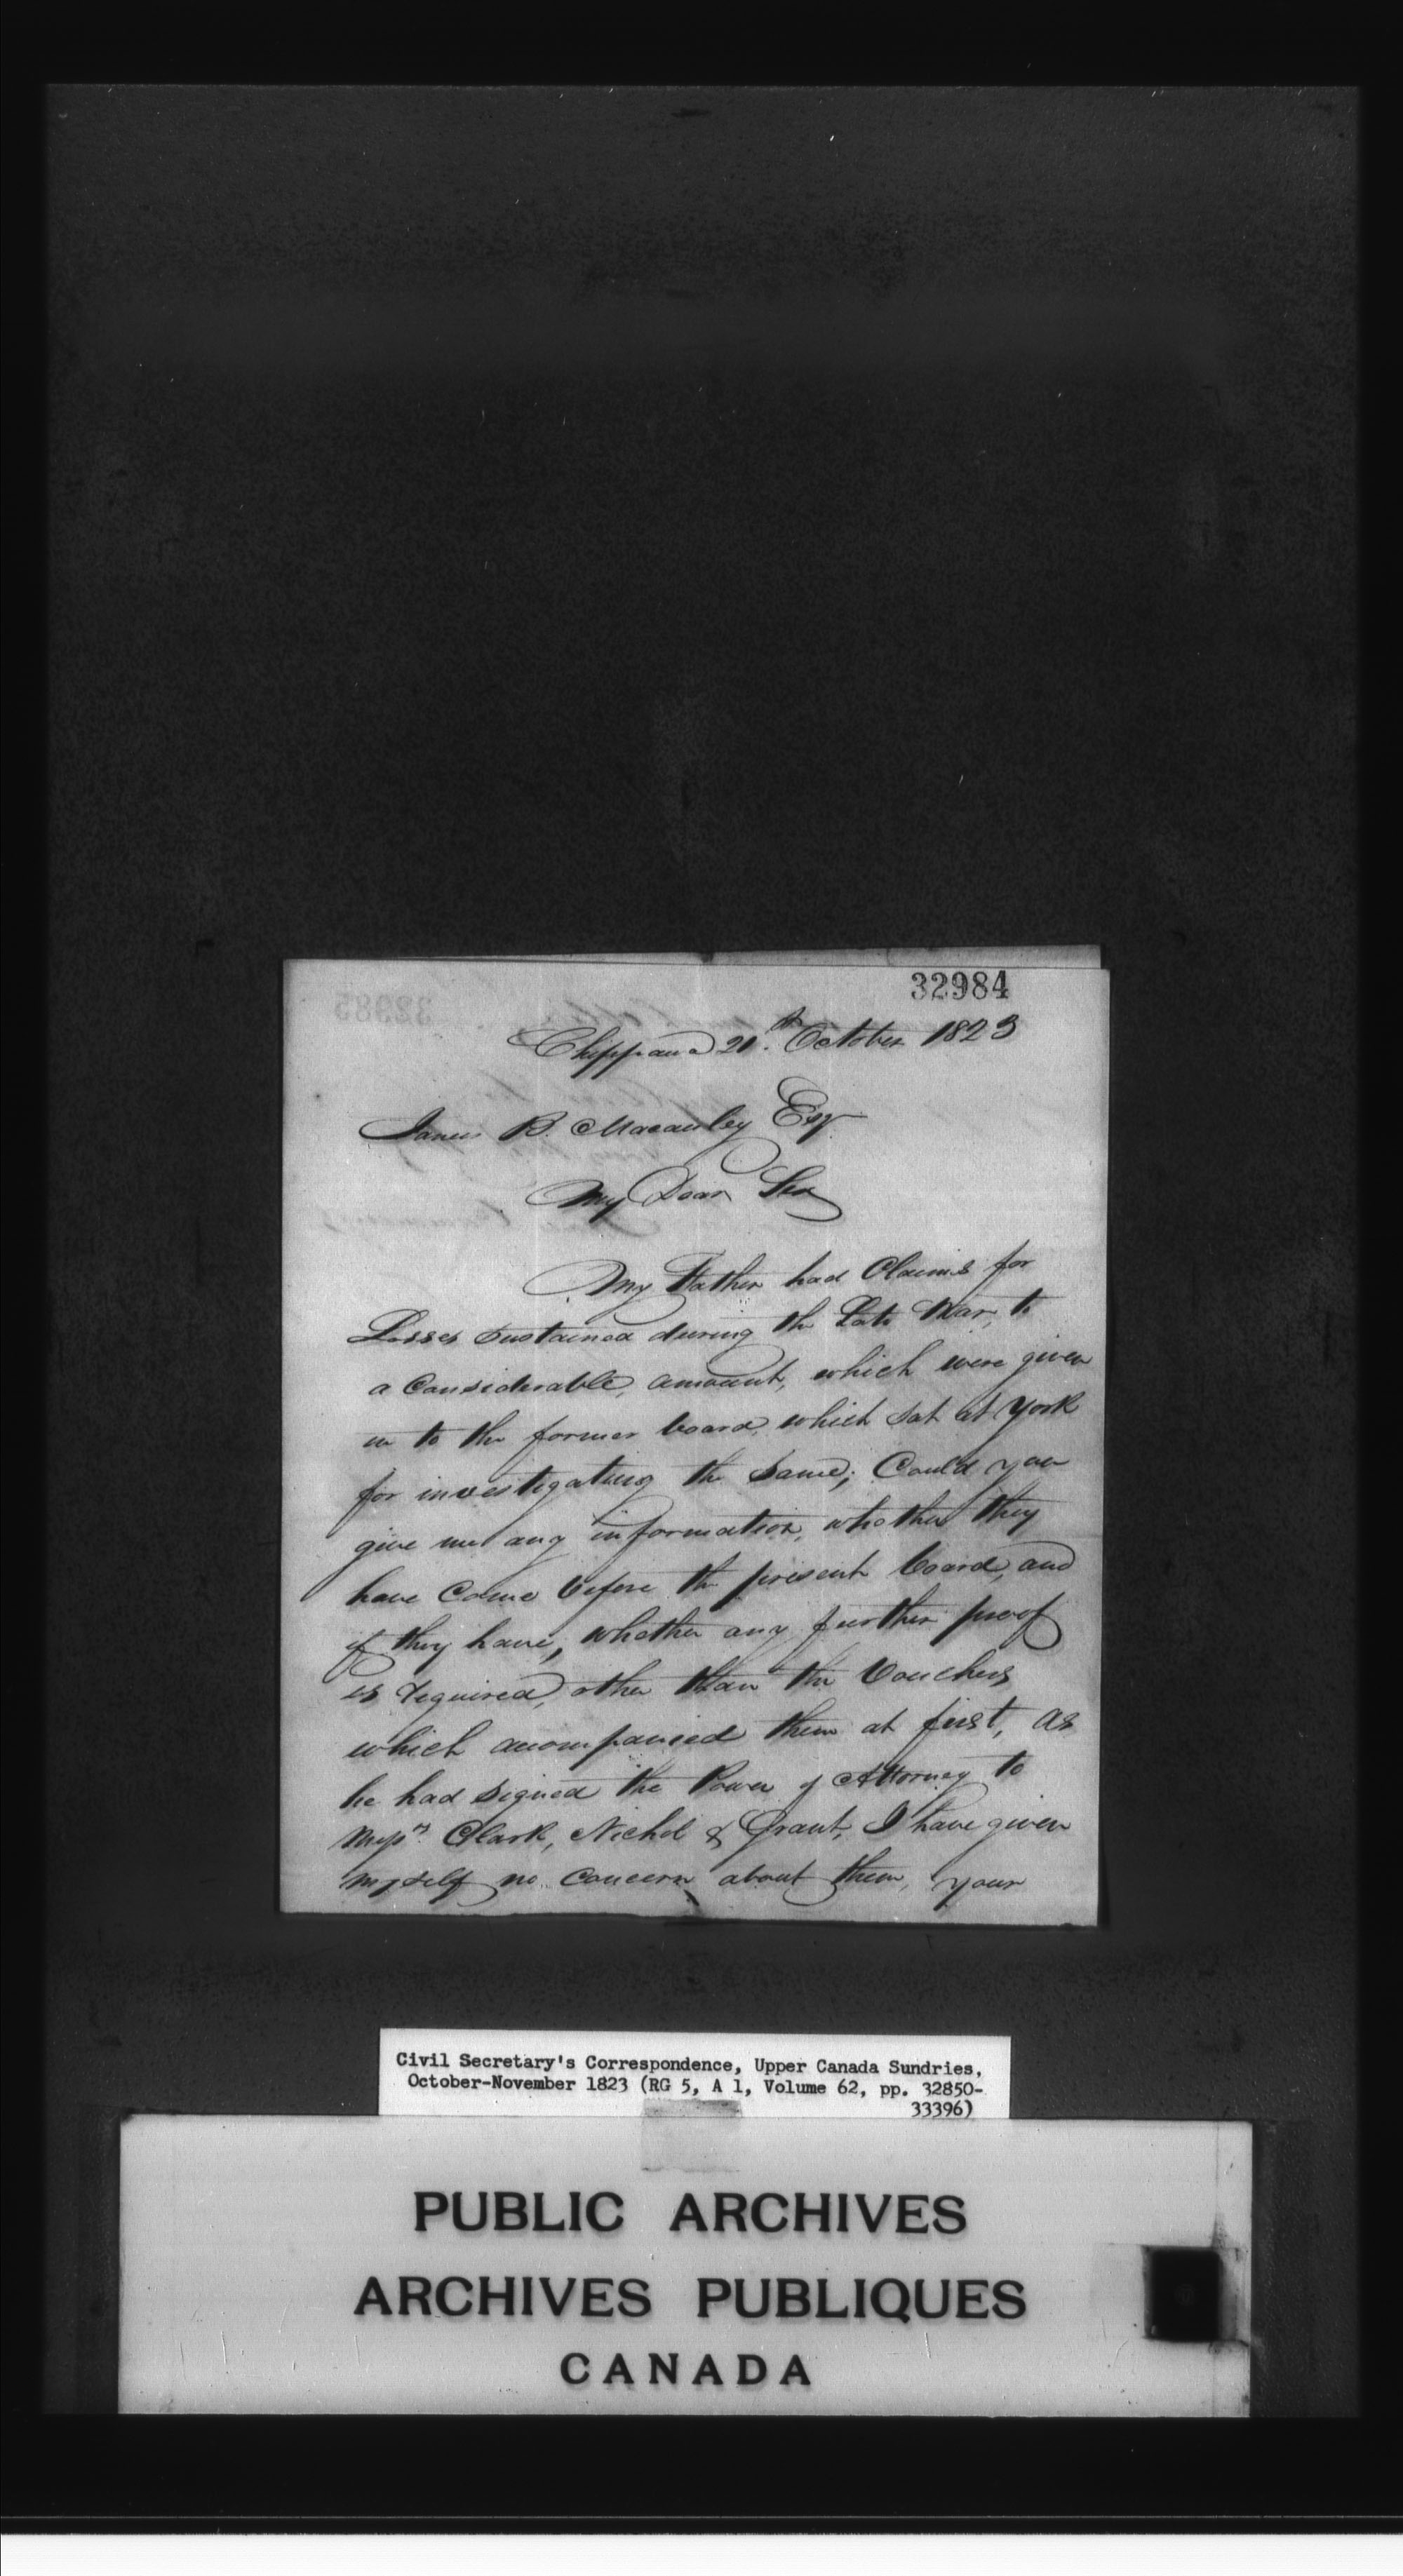 32984
Chippawa 21st. October 1823
James B. Macauley Esqr
My Dear Sir
My Father had Claims for
Losses Sustained during the Late War, to
a Considerable, amount, which were given
in to the former board, which Sat at York
for investigating the Same; Could you
give me any information, whether they
have Come before the present board, and
if they have, whether any further proof
is required, other than the Vouchers
which acompanied them at first, as
he had Signed the Power of Attorney to
Messrs. Clark, Nichol & Grant, I have given
myself no Concern about them, your
Civil Secretary's Correspondence, Upper Canada Sundries,
October-November 1823 (RG 5, A 1, Volume 62, pp. 32850-
33396)
PUBLIC ARCHIVES
ARCHIVES PUBLIQUES
CANADA